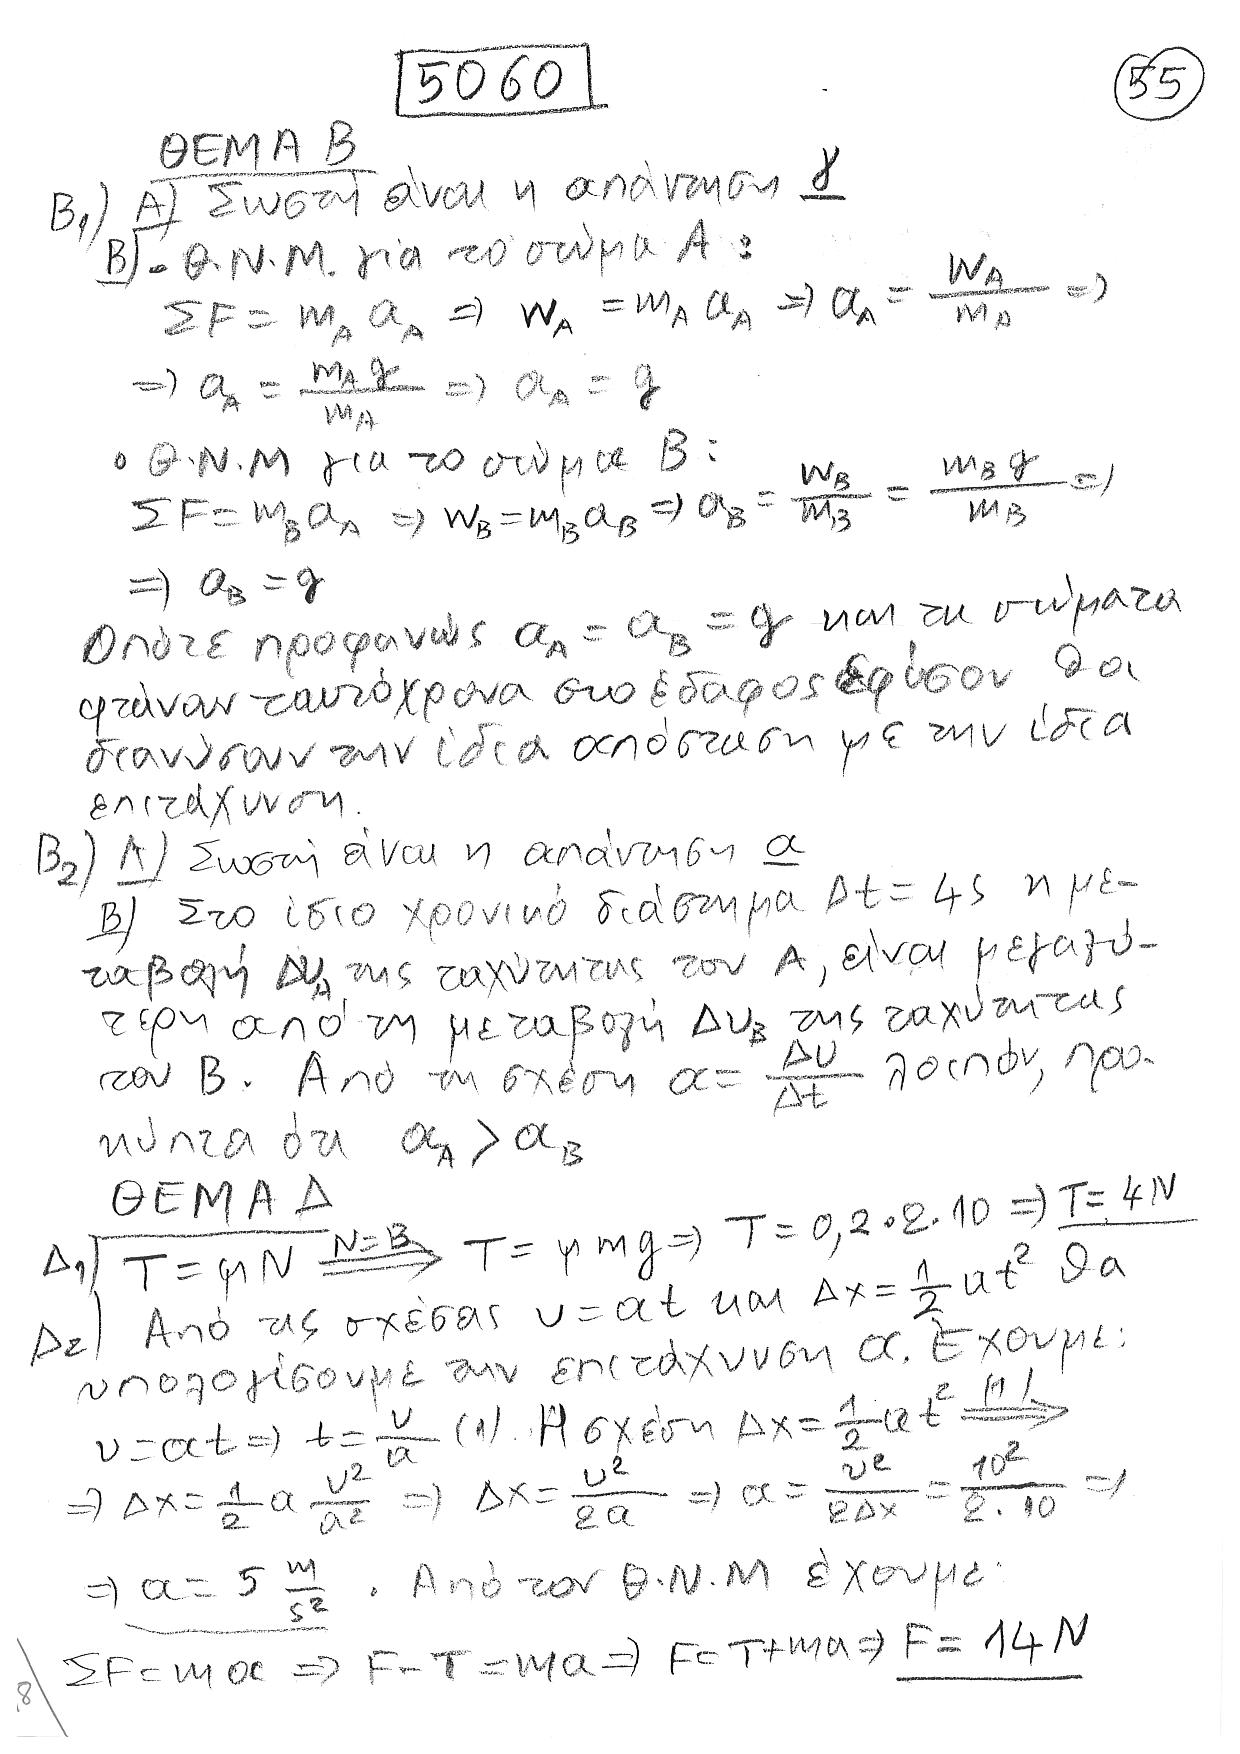 5060
55
ΘΕΜΑ Β
Β₁) Α) Σωστή είναι η απάντηση γ
Β) • Θ.Ν.Μ. για το σώμα Α :
ΣF = m_A a_A ⇒ w_A = m_A a_A ⇒ a_A = w_A / m_A ⇒
⇒ a_A = m_A g / m_A ⇒ a_A = g
• Θ.Ν.Μ για το σώμα Β :
ΣF = m_B a_A ⇒ w_B = m_B a_B ⇒ a_B = w_B / m_B = m_B g / m_B ⇒
⇒ a_B = g
Οπότε προφανώς a_A = a_B = g και τα σώματα
φτάνουν ταυτόχρονα στο έδαφος εφόσον θα
διανύσουν την ίδια απόσταση με την ίδια
επιτάχυνση.
Β₂) Α) Σωστή είναι η απάντηση α
Β) Στο ίσιο χρονικό διάστημα Δt = 4s η με-
ταβολή Δυ_A της ταχύτητας του Α, είναι μεγαλύ-
τερη από τη μεταβολή Δυ_B της ταχύτητας
του Β. Από τη σχέση a = Δυ / Δt λοιπόν, προ-
κύπτει ότι a_A > a_B
ΘΕΜΑ Δ
Δ₁) T = μN =N=B⇒ T = μmg ⇒ T = 0,2 • 2 • 10 ⇒ T = 4N
Δ₂) Από τις σχέσεις υ = at και Δx = 1/2 at² θα
υπολογίσουμε την επιτάχυνση a. Έχουμε:
υ = at ⇒ t = υ/a (1). Η σχέση Δx = 1/2 at² =(1)⇒
⇒ Δx = 1/2 a υ²/a² ⇒ Δx = υ²/2a ⇒ a = υ²/2Δx = 10²/2·10 ⇒
⇒ a = 5 m/s² . Από τον Θ.Ν.Μ έχουμε:
ΣF = ma ⇒ F - T = ma ⇒ F = T + ma ⇒ F = 14N
8